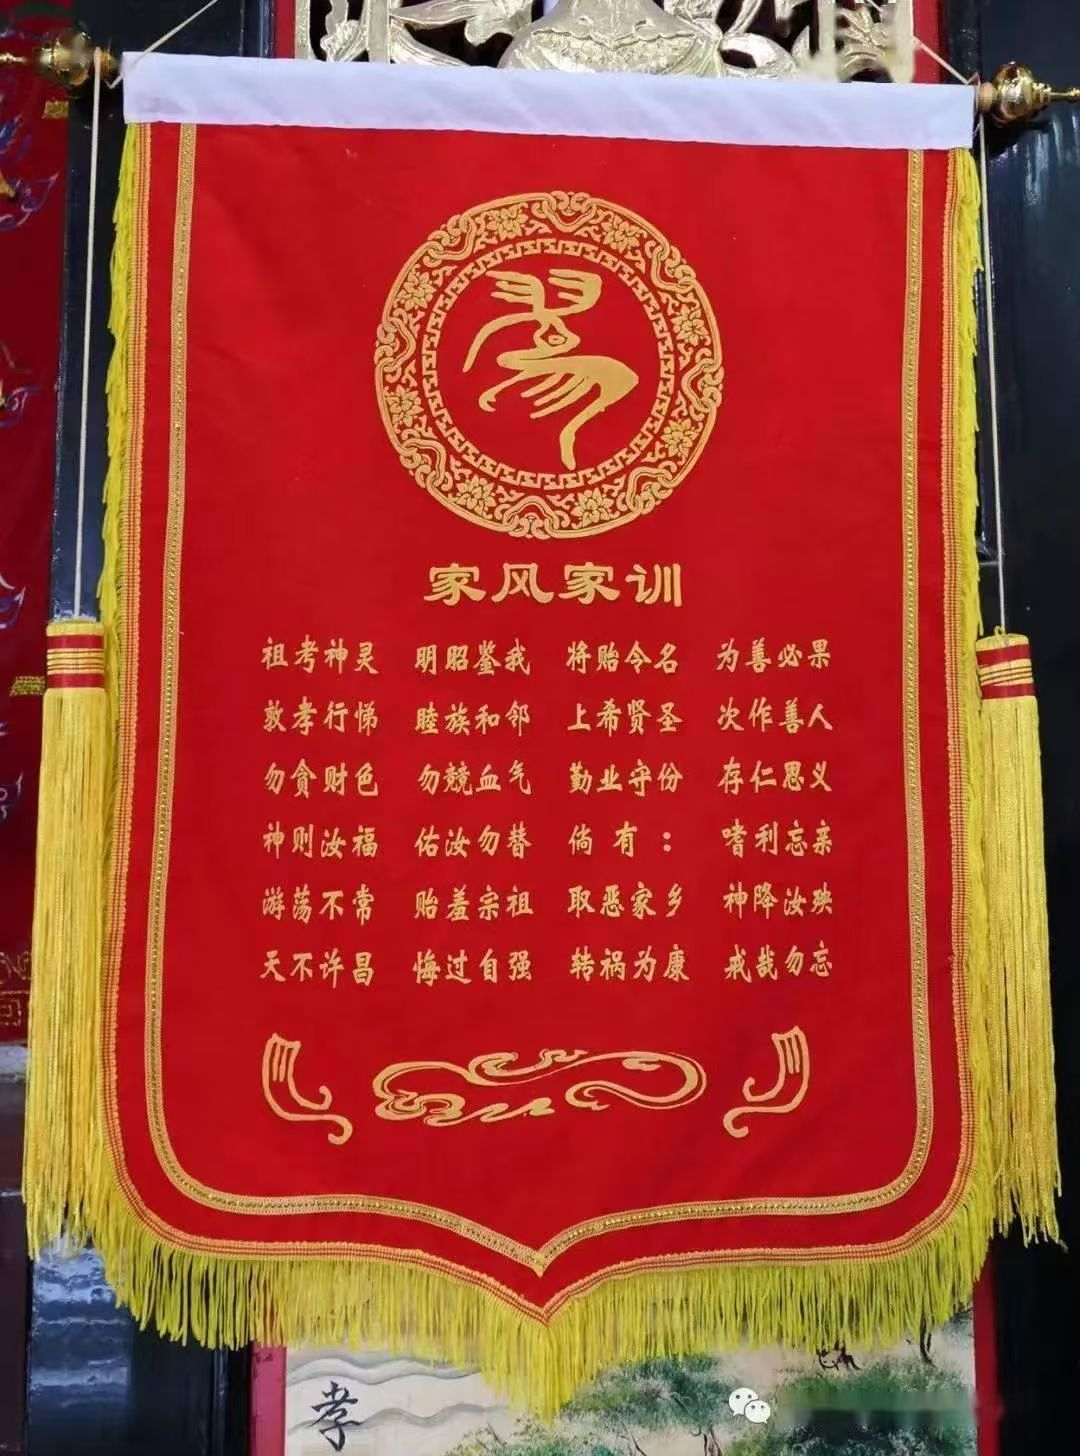 家风家训
祖考神灵 明昭鉴我 将贻令名 为善必果
敦孝行悌 睦族和邻 上希贤圣 次作善人
勿贪财色 勿競血气 勤业守份 存仁思义
神则汝福 佑汝勿替 倘有： 嗜利忘亲
游荡不常 贻羞宗祖 取恶家乡 神降汝殃
天不许昌 悔过自强 转祸为康 戒哉勿忘
孝